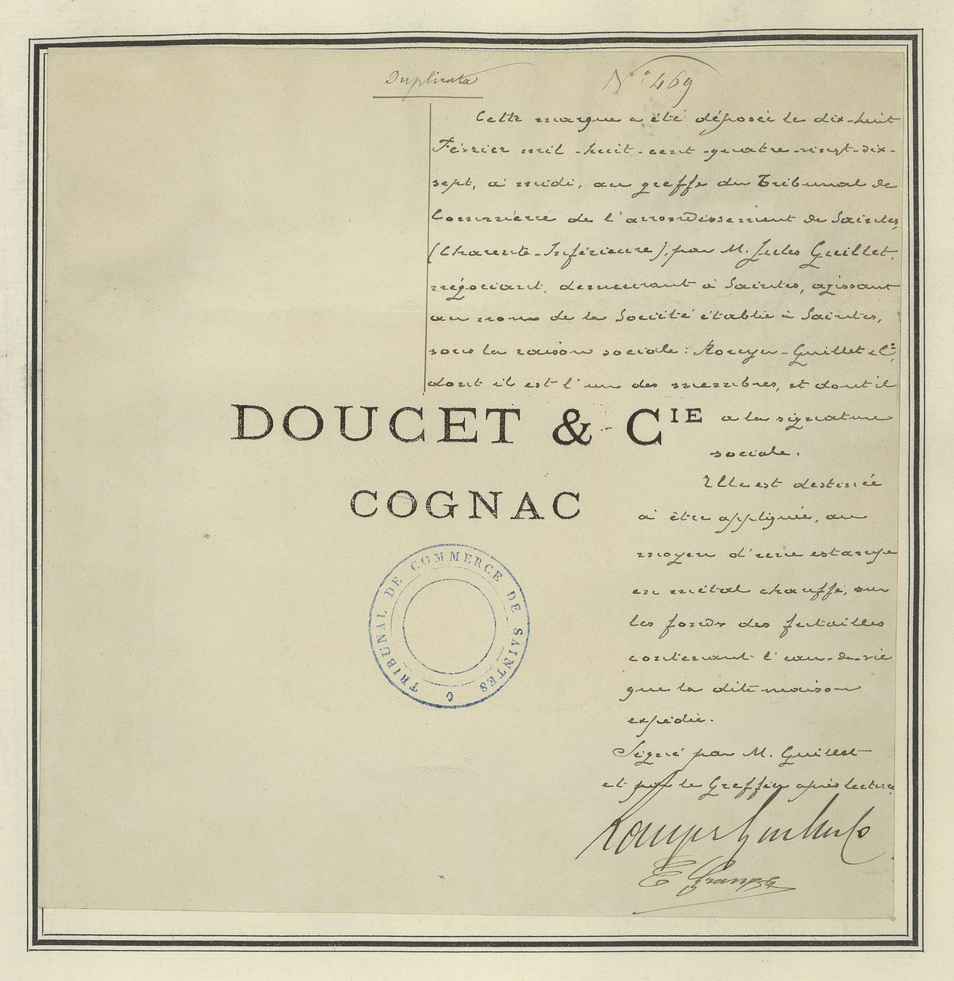 Duplicata
N° 469
Cette marque a été déposée le dix-huit
Février mil-huit-cent-quatre-vingt-dix-
sept, à midi, au greffe du Tribunal de
Commerce de l'arrondissement de Saintes
(Charente-Inférieure), par M. Jules Guillet,
négociant, demeurant à Saintes, agissant
au nom de la Société établie à Saintes,
sous la raison sociale: Rouyer-Guillet & Cie,
dont il est l'un des membres, et dont il
a la signature
sociale.
DOUCET & CIE
COGNAC
Elle est destinée
à être appliquée, au
moyen d'une estampe
en métal chauffé, sur
les fonds des futailles
contenant l'eau-de-vie
que la dite maison
expédie.
Signé par M. Guillet
et par le Greffier après lecture
Rouyer Guillet & Co
E.
TRIBUNAL DE COMMERCE DE SAINTES